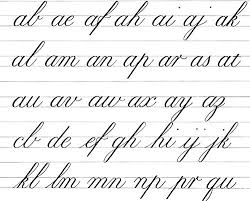 ab ae af ah ai aj ak
al am an ap ar as at
au av aw ax ay az
cb de ef gh hi ij jk
kl lm mn np pr qu